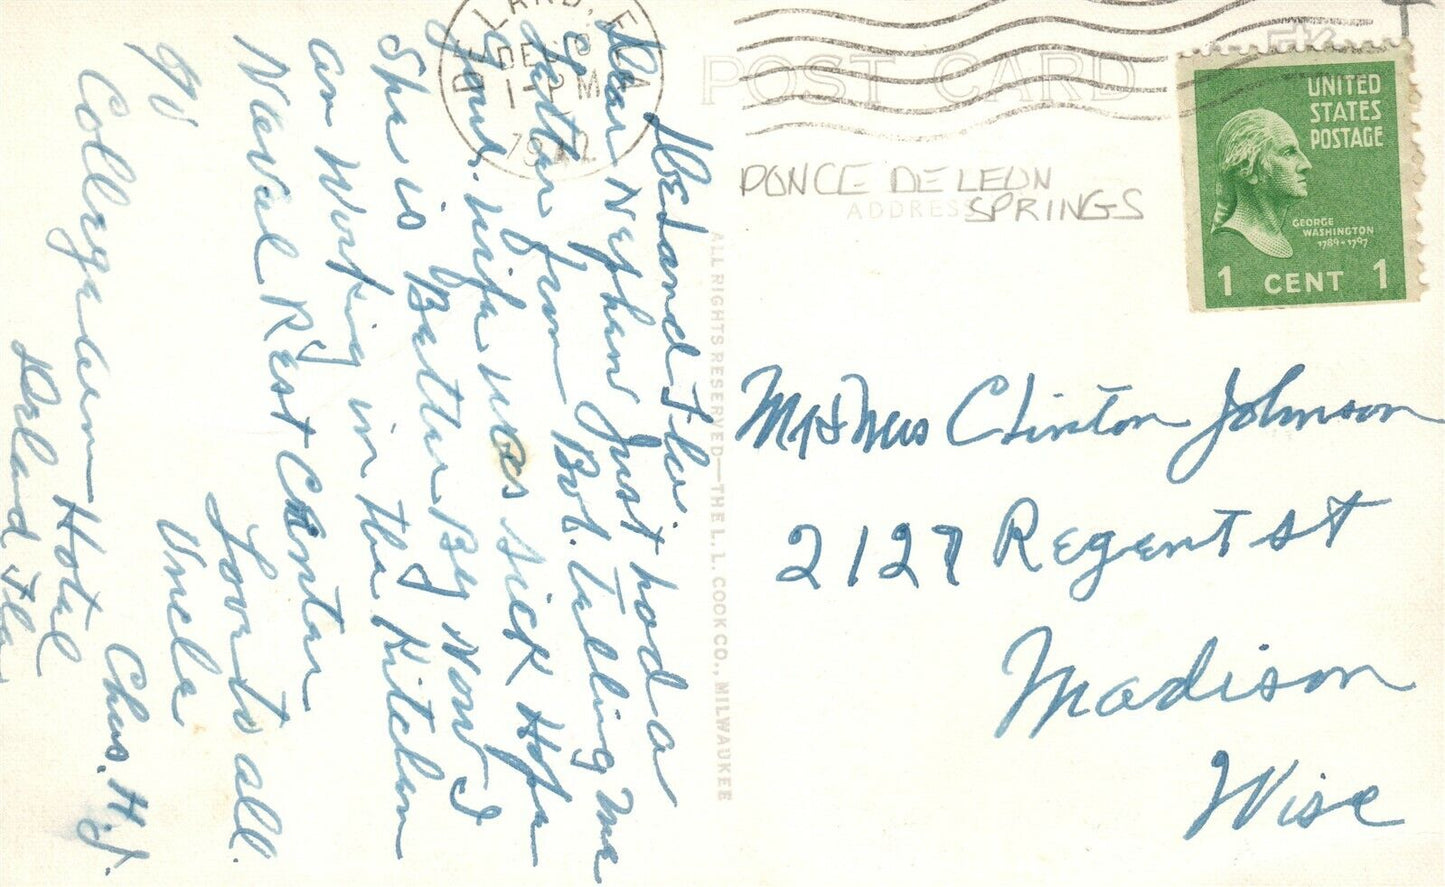 DELAND, FLA.
DEC
1-PM
1942
POST CARD
ADDRESS
PONCE DE LEON
SPRINGS
UNITED
STATES
POSTAGE
GEORGE
WASHINGTON
1789-1797
1 CENT 1
ALL RIGHTS RESERVED—THE L. L. COOK CO., MILWAUKEE
DeLand Fla
Dear Nephew Just had a
letter from Bob. Telling me
your wife was sick Hope
She is Better By Now I
am Working in the Kitchen
Naval Rest Center
Love to all.
Uncle
Chas. H. J.
College Hotel
Deland Fla
Mr & Mrs Clinton Johnson
2127 Regent st
Madison
Wisc